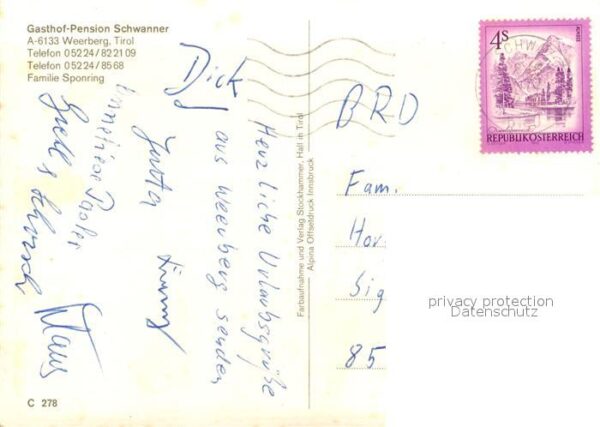 Gasthof-Pension Schwanner
A-6133 Weerberg, Tirol
Telefon 05224/822109
Telefon 05224/8568
Familie Sponring
Herzliche Urlaubsgrüße
aus Weerberg senden
Dick
Klaus
C 278
Farbaufnahme und Verlag Stockhammer, Hall in Tirol
Alpina Offsetdruck Innsbruck
4s
REPUBLIK ÖSTERREICH
BRD
Fam.
Hor
Sig
85
privacy protection
Datenschutz